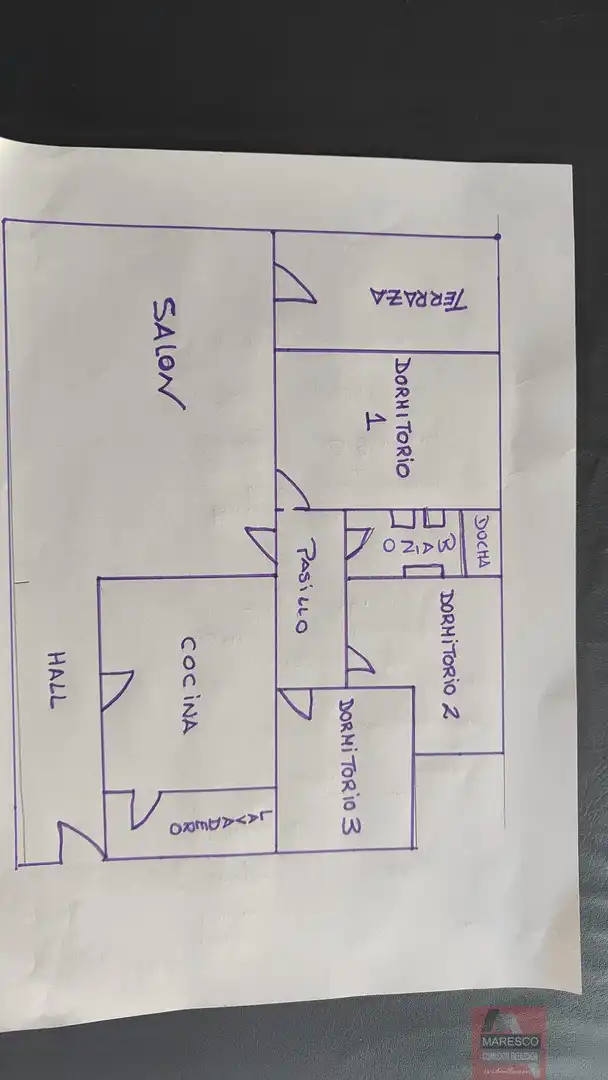 TERRAZA
DORMITORIO
1
SALON
DOCHA
BAÑO
PASILLO
DORMITORIO 2
COCINA
HALL
DORMITORIO 3
LAVADERO
MARESCO